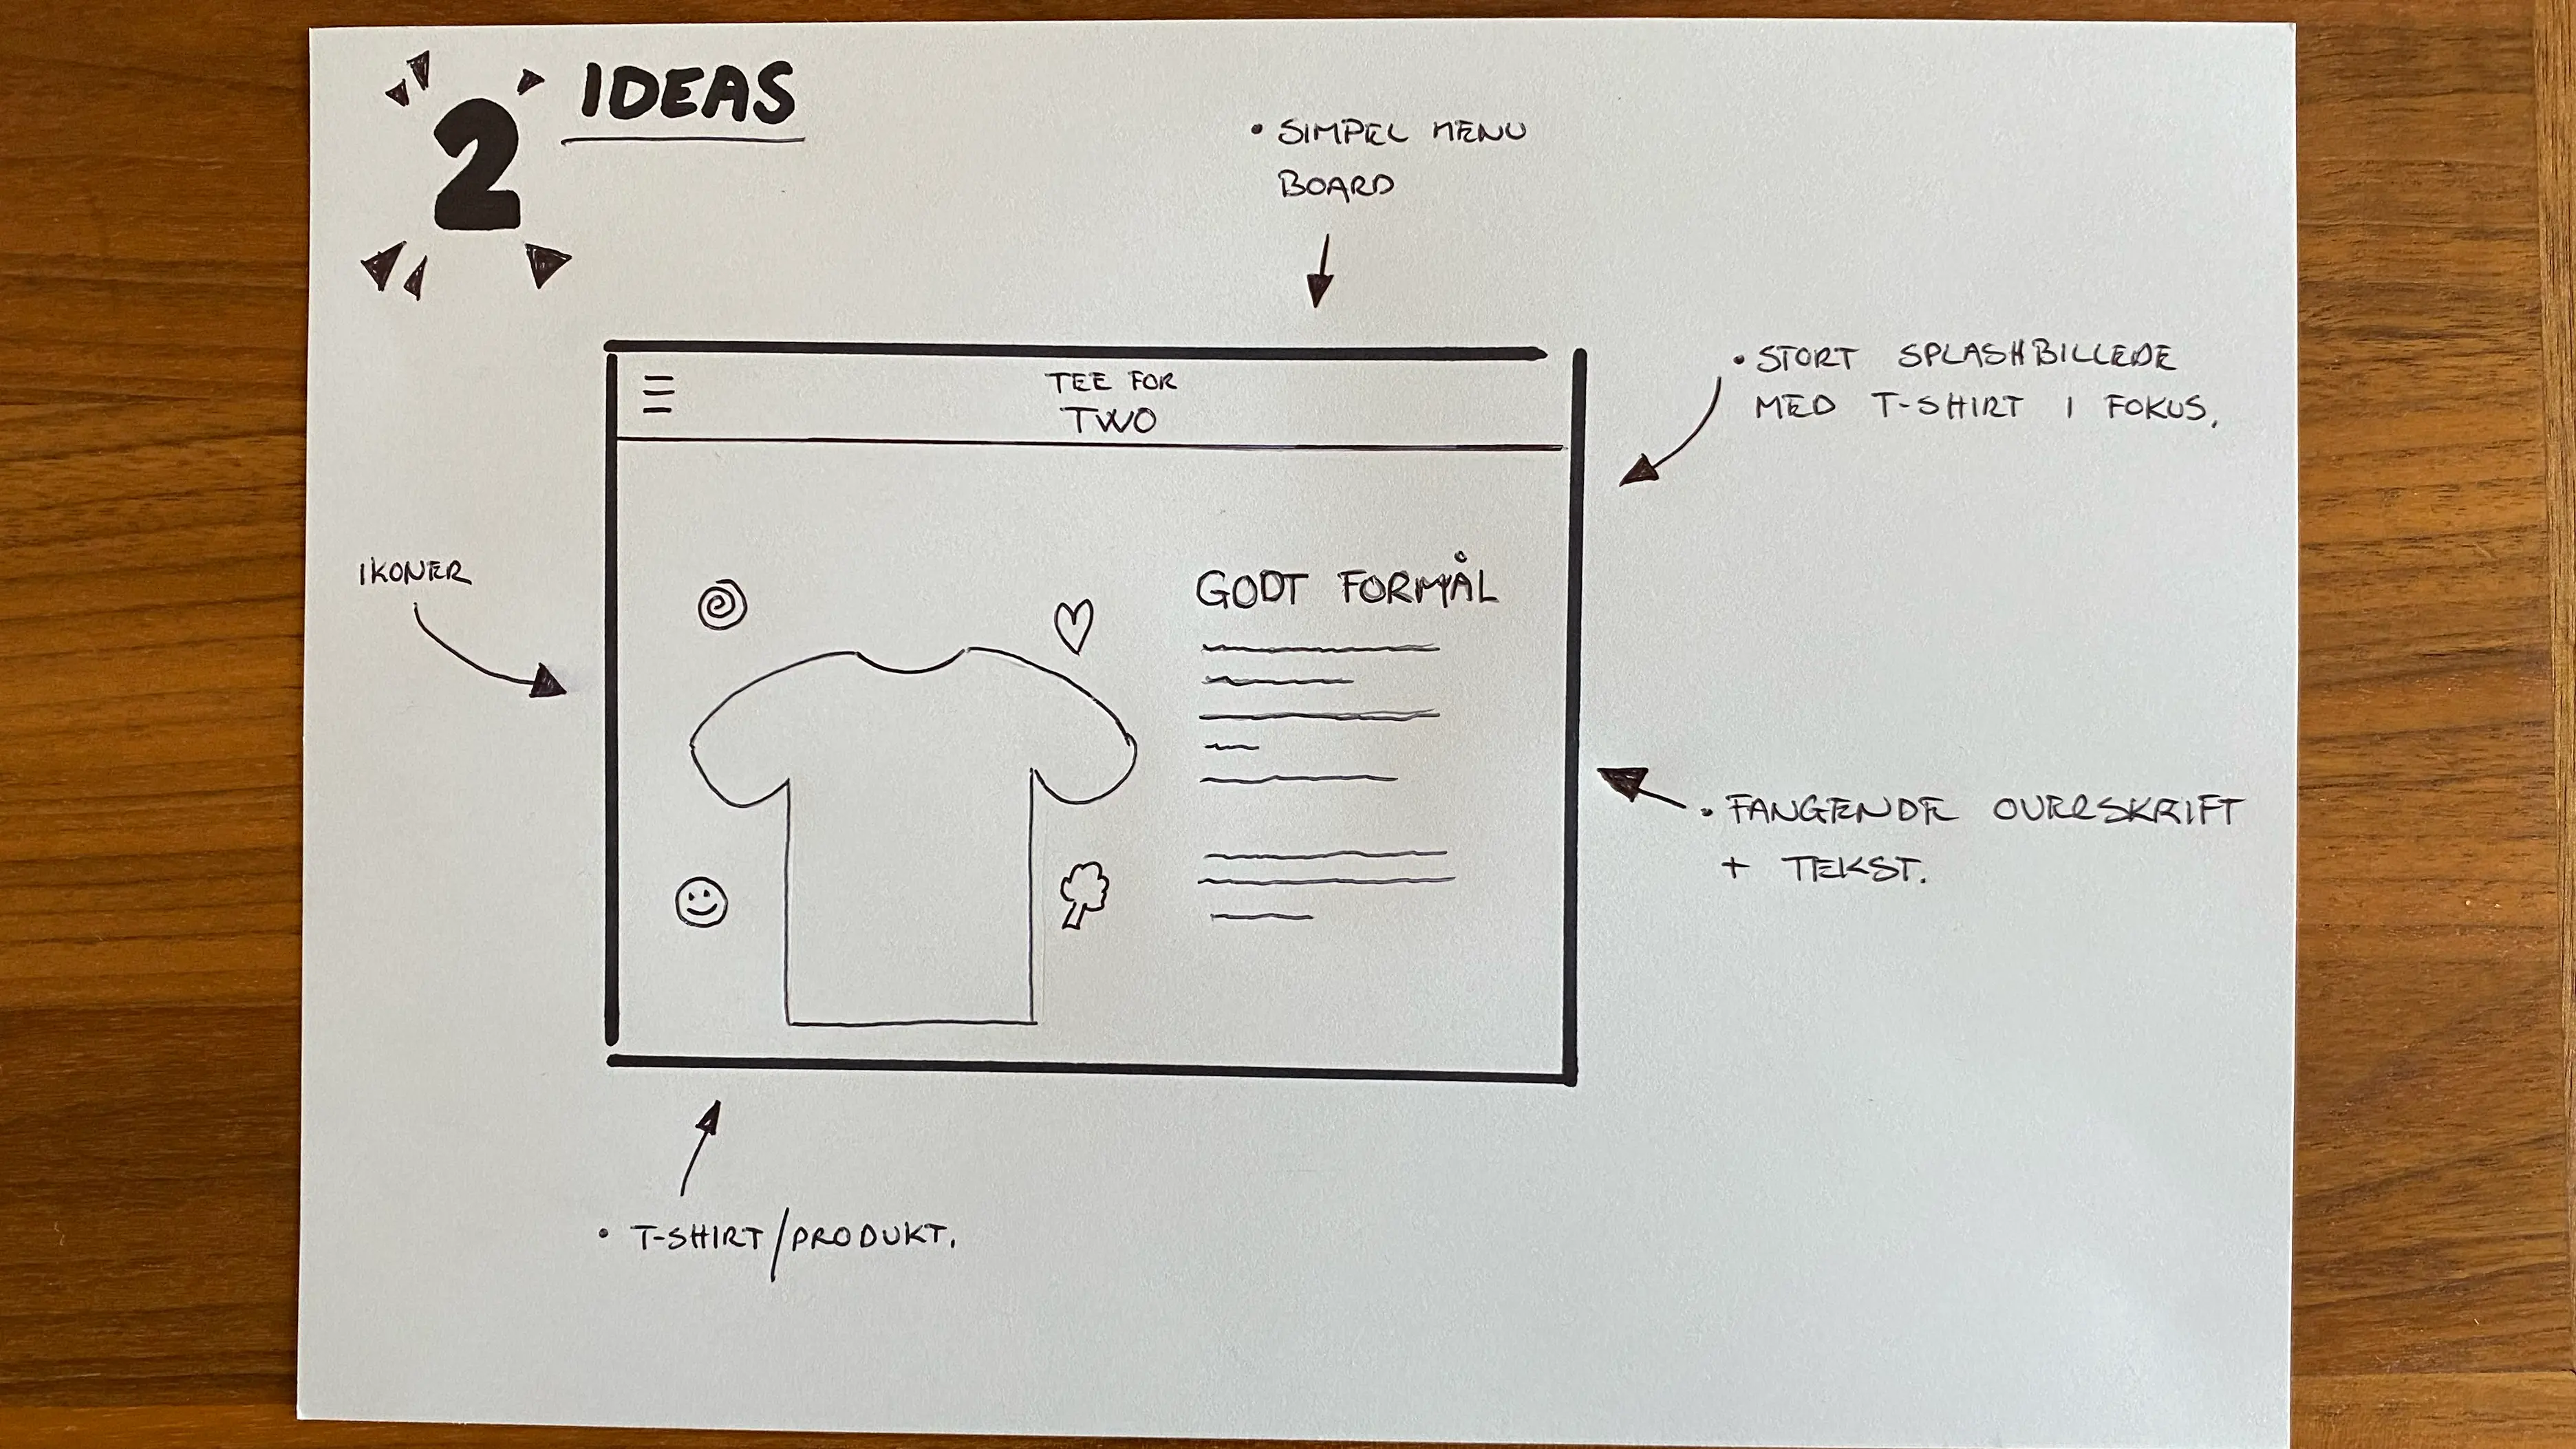 2 IDEAS
• SIMPEL MENU
BOARD
• STORT SPLASHBILLEDE
MED T-SHIRT I FOKUS.
TEE FOR
TWO
IKONER
GODT FORMÅL
• FANGENDE OVERSKRIFT
+ TEKST.
• T-SHIRT/PRODUKT.